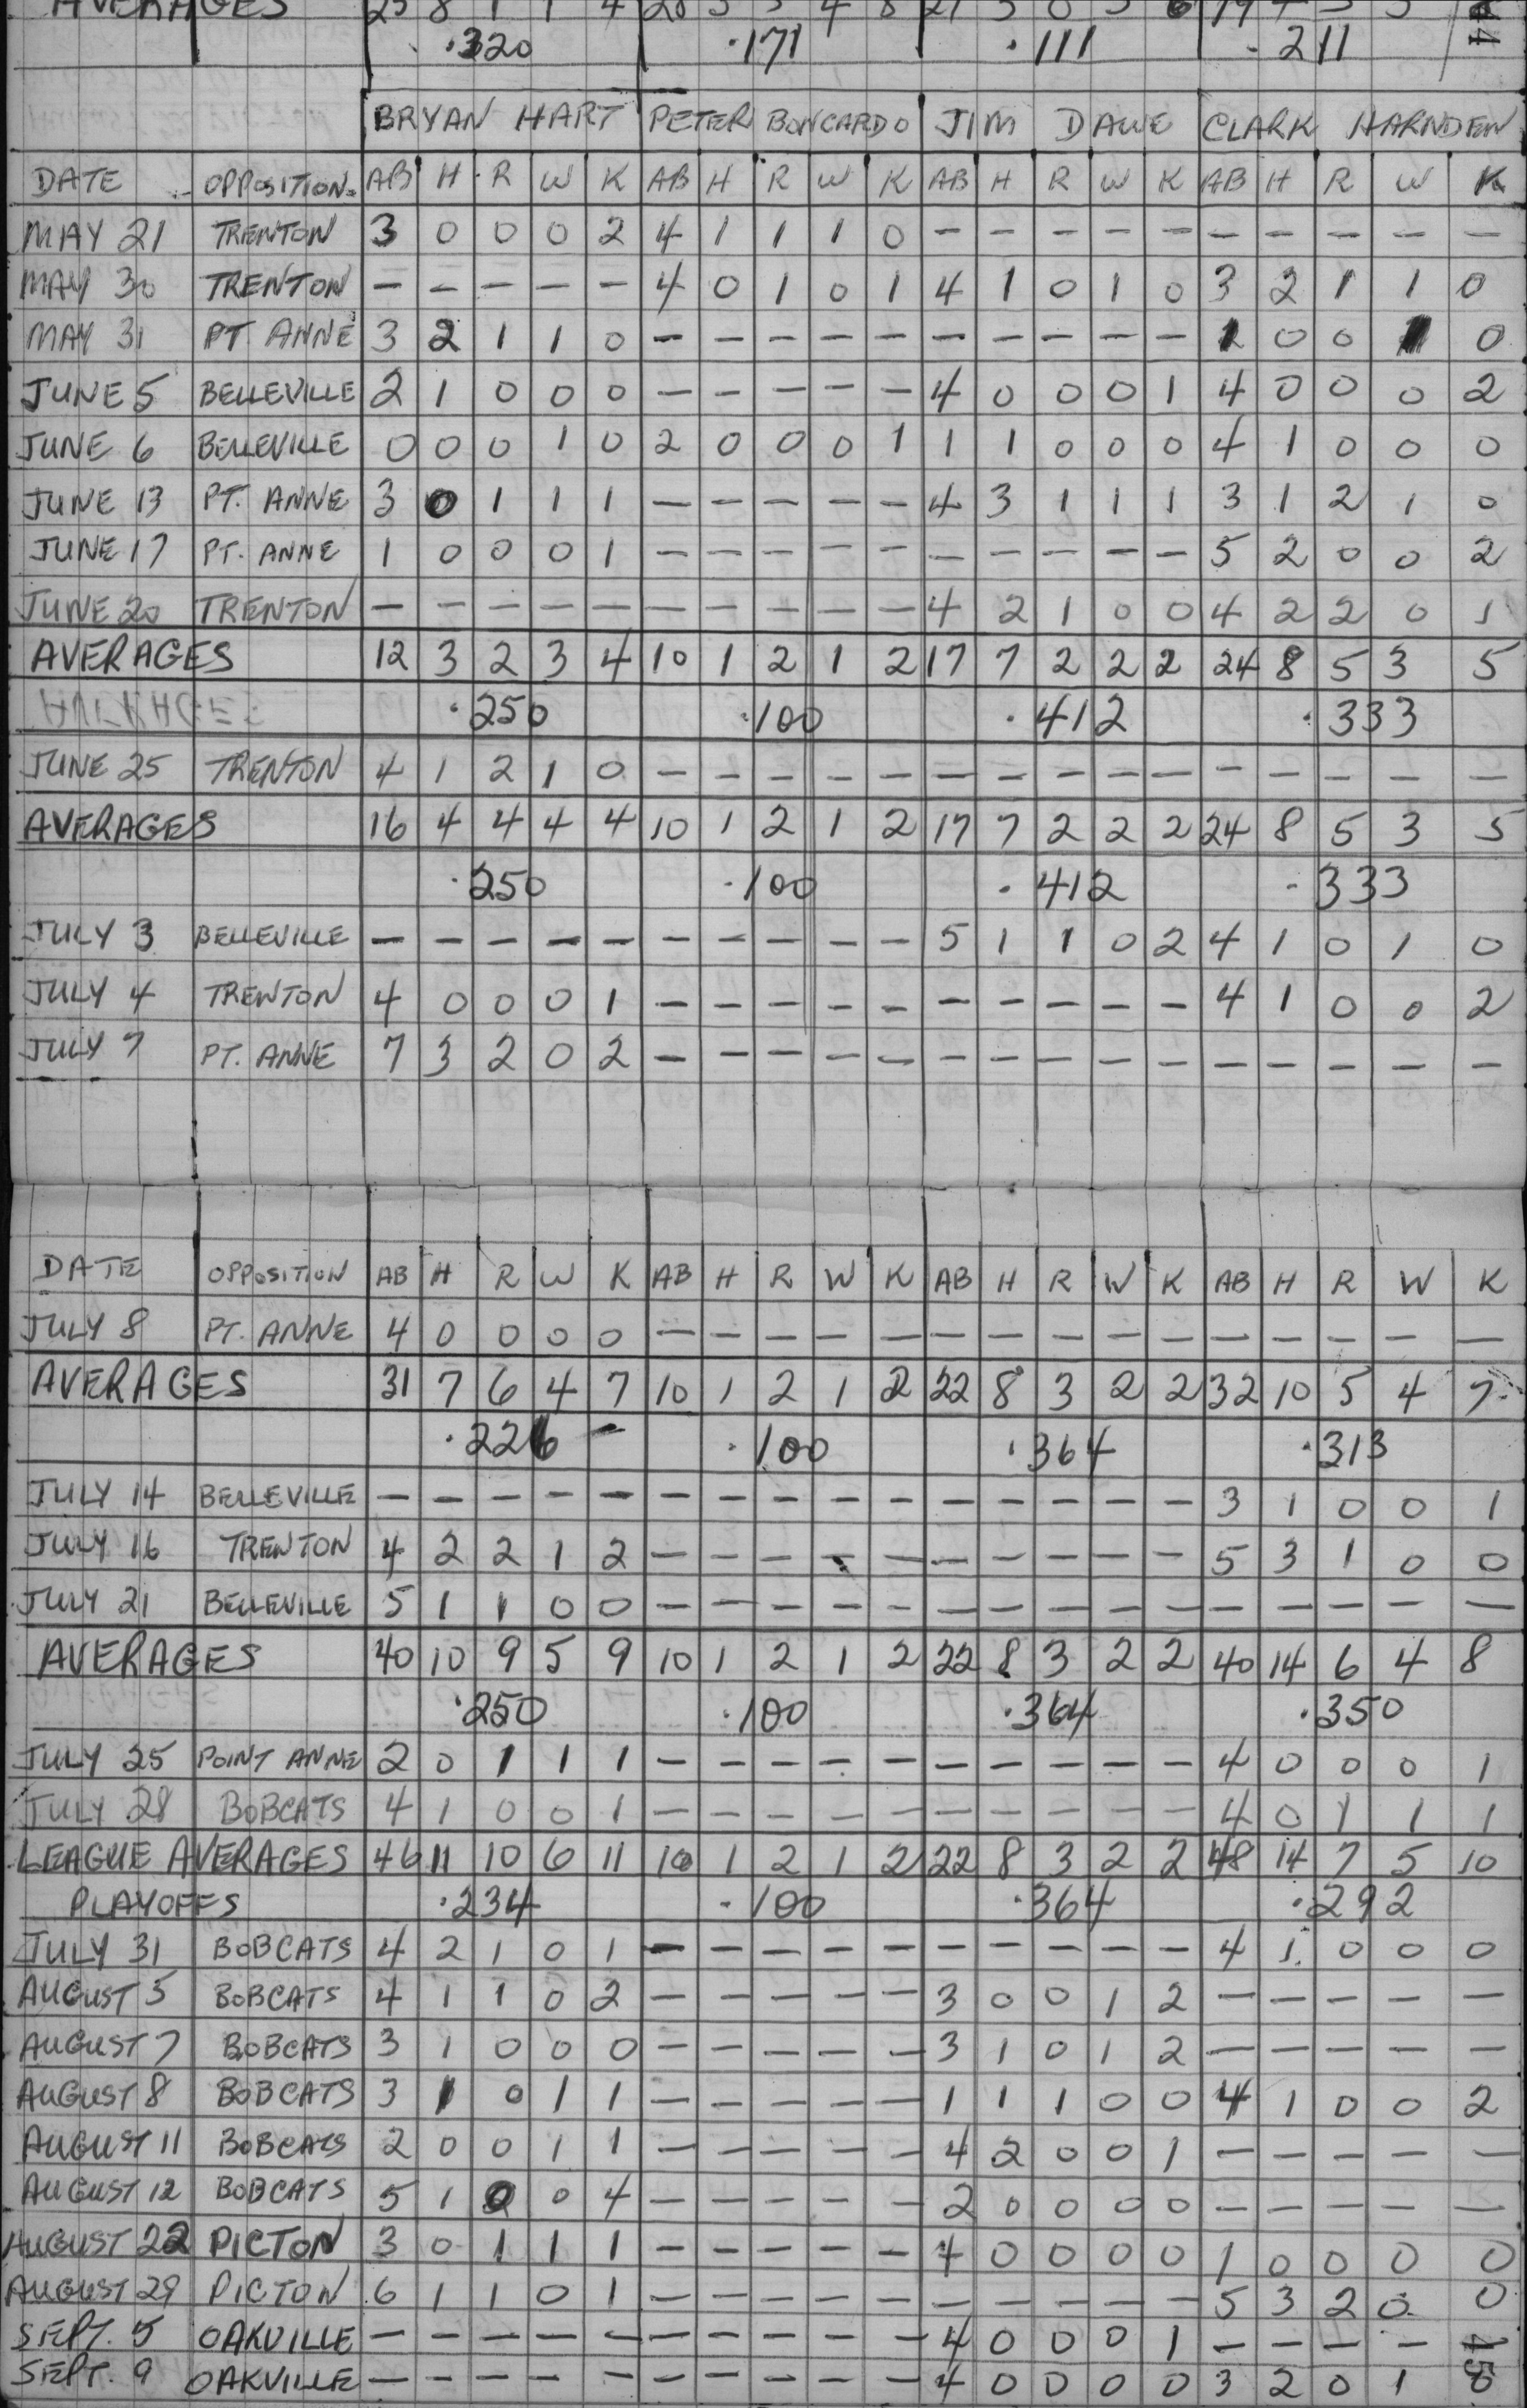 AVERAGES 25 8 1 1 4 20 3 4 8 21 3 0 3 6 19 4 3 3
.320 .171 .111 .211
BRYAN HART PETER BONCARDO JIM DAWE CLARK HARNDEN
DATE OPPOSITION. AB H R W K AB H R W K AB H R W K AB H R W K
MAY 21 TRENTON 3 0 0 0 2 4 1 1 1 0 - - - - - - - - - -
MAY 30 TRENTON - - - - - 4 0 1 0 1 4 1 0 1 0 3 2 1 1 0
MAY 31 PT. ANNE 3 2 1 1 0 - - - - - - - - - - 1 0 0 1 0
JUNE 5 BELLEVILLE 2 1 0 0 0 - - - - - 4 0 0 0 1 4 0 0 0 2
JUNE 6 BELLEVILLE 0 0 0 1 0 2 0 0 0 1 1 1 0 0 0 4 1 0 0 0
JUNE 13 PT. ANNE 3 0 1 1 1 - - - - - 4 3 1 1 1 3 1 2 1 0
JUNE 17 PT. ANNE 1 0 0 0 1 - - - - - - - - - - 5 2 0 0 2
JUNE 20 TRENTON - - - - - - - - - - 4 2 1 0 0 4 2 2 0 1
AVERAGES 12 3 2 3 4 10 1 2 1 2 17 7 2 2 2 24 8 5 3 5
.250 .100 .412 .333
JUNE 25 TRENTON 4 1 2 1 0 - - - - - - - - - - - - - - -
AVERAGES 16 4 4 4 4 10 1 2 1 2 17 7 2 2 2 24 8 5 3 5
.250 .100 .412 .333
JULY 3 BELLEVILLE - - - - - - - - - - 5 1 1 0 2 4 1 0 1 0
JULY 4 TRENTON 4 0 0 0 1 - - - - - - - - - - 4 1 0 0 2
JULY 7 PT. ANNE 7 3 2 0 2 - - - - - - - - - - - - - - -
DATE OPPOSITION AB H R W K AB H R W K AB H R W K AB H R W K
JULY 8 PT. ANNE 4 0 0 0 0 - - - - - - - - - - - - - - -
AVERAGES 31 7 6 4 7 10 1 2 1 2 22 8 3 2 2 32 10 5 4 7
.226 - .100 .364 .313
JULY 14 BELLEVILLE - - - - - - - - - - - - - - - 3 1 0 0 1
JULY 16 TRENTON 4 2 2 1 2 - - - - - - - - - - 5 3 1 0 0
JULY 21 BELLEVILLE 5 1 1 0 0 - - - - - - - - - - - - - - -
AVERAGES 40 10 9 5 9 10 1 2 1 2 22 8 3 2 2 40 14 6 4 8
.250 .100 .364 .350
JULY 25 POINT ANNE 2 0 1 1 1 - - - - - - - - - - 4 0 0 0 1
JULY 28 BOBCATS 4 1 0 0 1 - - - - - - - - - - 4 0 1 1 1
LEAGUE AVERAGES 46 11 10 6 11 10 1 2 1 2 22 8 3 2 2 48 14 7 5 10
PLAYOFFS .234 .100 .364 .292
JULY 31 BOBCATS 4 2 1 0 1 - - - - - - - - - - 4 1 0 0 0
AUGUST 5 BOBCATS 4 1 1 0 2 - - - - - 3 0 0 1 2 - - - - -
AUGUST 7 BOBCATS 3 1 0 0 0 - - - - - 3 1 0 1 2 - - - - -
AUGUST 8 BOBCATS 3 1 0 1 1 - - - - - 1 1 1 0 0 4 1 0 0 2
AUGUST 11 BOBCATS 2 0 0 1 1 - - - - - 4 2 0 0 1 - - - - -
AUGUST 12 BOBCATS 5 1 0 4 - - - - - 2 0 0 0 0 - - - - -
AUGUST 22 PICTON 3 0 1 1 1 - - - - - 4 0 0 0 0 1 0 0 0 0
AUGUST 29 PICTON 6 1 1 0 1 - - - - - - - - - - 5 3 2 0 0
SEPT. 5 OAKVILLE - - - - - - - - - - 4 0 0 0 1 - - - -
SEPT. 9 OAKVILLE - - - - - - - - - - 4 0 0 0 0 3 2 0 1